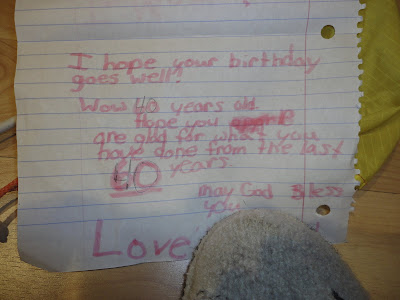 I hope your birthday
goes well!
Wow 40 years old.
Hope you
are glad for what you
have done from the last
40 years
may God Bless
you
Love